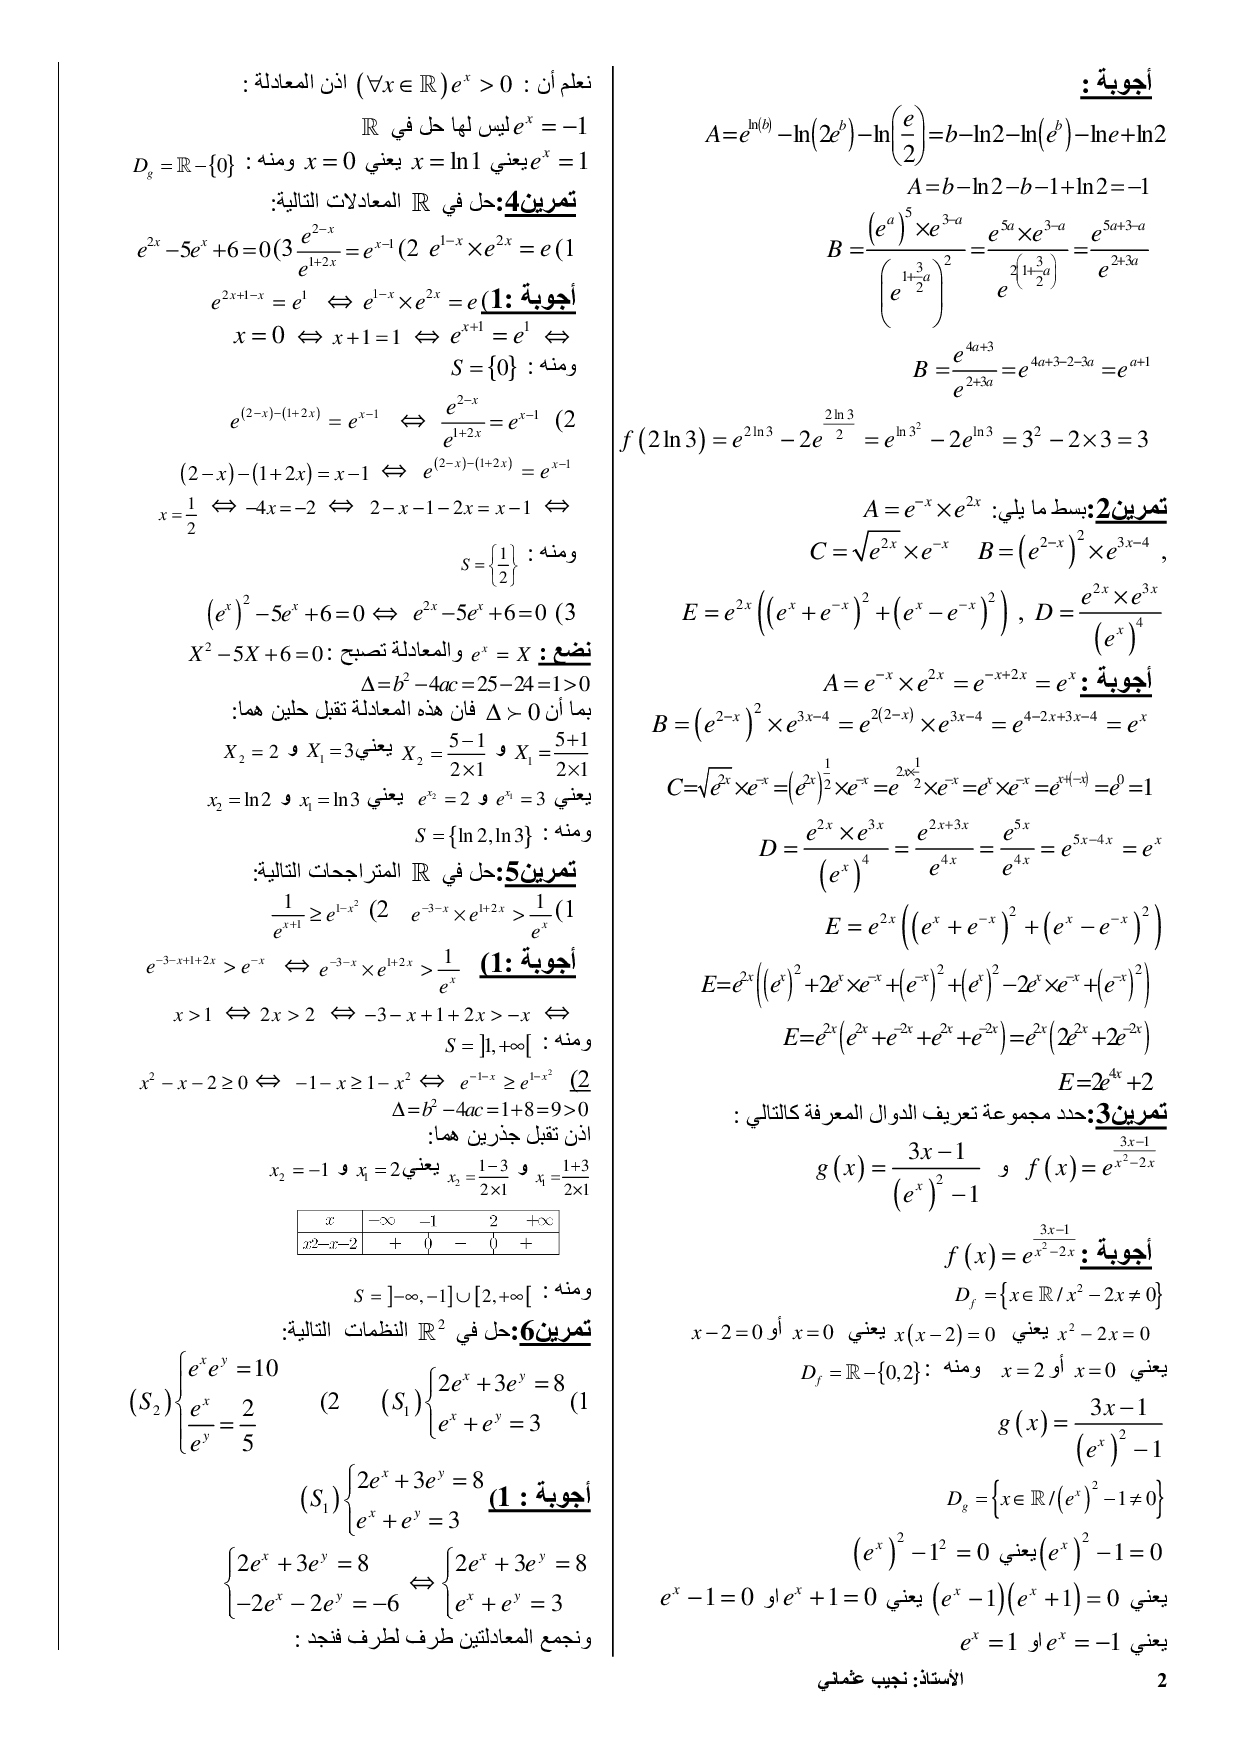 أجوبة :
A=e^{ln(b)} −ln(2e^b)−ln(e/2)=b−ln2−ln(e^b)−lne+ln2
A=b−ln2−b−1+ln2=−1
B = ((e^a)^5 ×e^{3−a})/(e^{1+(3/2)a})^2 = (e^{5a}×e^{3−a})/e^{2(1+(3/2)a)} = e^{5a+3−a}/e^{2+3a}
B = e^{4a+3}/e^{2+3a} = e^{4a+3−2−3a} = e^{a+1}
f(2ln3) = e^{2ln3} − 2e^{(2ln3)/2} = e^{ln3^2} − 2e^{ln3} = 3^2 − 2×3 = 3
تمرين2:بسط ما يلي: A = e^{−x} × e^{2x}
, B = (e^{2−x})^2 × e^{3x−4} C = √(e^{2x}) × e^{−x}
D = (e^{2x} × e^{3x})/(e^x)^4 , E = e^{2x}((e^x + e^{−x})^2 + (e^x − e^{−x})^2)
أجوبة : A = e^{−x} × e^{2x} = e^{−x+2x} = e^x
B = (e^{2−x})^2 × e^{3x−4} = e^{2(2−x)} × e^{3x−4} = e^{4−2x+3x−4} = e^x
C=√(e^{2x}) ×e^{−x} =(e^{2x})^{1/2}×e^{−x} =e^{2x×1/2}×e^{−x} =e^x×e^{−x} =e^{x+(−x)} =e^0=1
D = (e^{2x} × e^{3x})/(e^x)^4 = e^{2x+3x}/e^{4x} = e^{5x}/e^{4x} = e^{5x−4x} = e^x
E = e^{2x}((e^x + e^{−x})^2 + (e^x − e^{−x})^2)
E=e^{2x}((e^x)^2 +2e^x×e^{−x} +(e^{−x})^2 +(e^x)^2 −2e^x×e^{−x} +(e^{−x})^2)
E=e^{2x}(e^{2x}+e^{−2x}+e^{2x}+e^{−2x})=e^{2x}(2e^{2x}+2e^{−2x})
E=2e^{4x}+2
تمرين3:حدد مجموعة تعريف الدوال المعرفة كالتالي :
f(x) = e^{(3x−1)/(x^2−2x)} و g(x) = (3x−1)/((e^x)^2 −1)
أجوبة : f(x) = e^{(3x−1)/(x^2−2x)}
D_f = {x∈ℝ / x^2 − 2x ≠ 0}
x^2 − 2x = 0 يعني x(x−2) = 0 يعني x = 0 أو x−2 = 0
يعني x = 0 أو x = 2 ومنه : D_f = ℝ−{0,2}
g(x) = (3x−1)/((e^x)^2 −1)
D_g = {x∈ℝ/(e^x)^2 −1≠0}
(e^x)^2 −1 = 0 يعني (e^x)^2 −1^2 = 0
يعني (e^x −1)(e^x +1) = 0 يعني e^x +1 = 0 او e^x −1 = 0
يعني e^x = −1 او e^x = 1
نعلم أن : (∀x∈ℝ) e^x > 0 اذن المعادلة :
e^x = −1 ليس لها حل في ℝ
e^x = 1 يعني x = ln1 يعني x = 0 ومنه : D_g = ℝ−{0}
تمرين4:حل في ℝ المعادلات التالية:
1) e^{1−x} × e^{2x} = e 2) e^{2−x}/e^{1+2x} = e^{x−1} 3) e^{2x} −5e^x +6 = 0
أجوبة :1) e^{1−x} × e^{2x} = e ⇔ e^{2x+1−x} = e^1
⇔ e^{x+1} = e^1 ⇔ x+1 = 1 ⇔ x = 0
ومنه : S = {0}
2) e^{2−x}/e^{1+2x} = e^{x−1} ⇔ e^{(2−x)−(1+2x)} = e^{x−1}
e^{(2−x)−(1+2x)} = e^{x−1} ⇔ (2−x)−(1+2x) = x−1
⇔ 2−x−1−2x = x−1 ⇔ −4x = −2 ⇔ x = 1/2
ومنه : S = {1/2}
3) e^{2x} −5e^x +6 = 0 ⇔ (e^x)^2 −5e^x +6 = 0
نضع : e^x = X والمعادلة تصبح : X^2 −5X +6 = 0
Δ=b^2 −4ac=25−24=1>0
بما أن Δ ≻ 0 فان هذه المعادلة تقبل حلين هما:
X_1 = (5+1)/(2×1) و X_2 = (5−1)/(2×1) يعني X_1 = 3 و X_2 = 2
يعني e^{x_1} = 3 و e^{x_2} = 2 يعني x_1 = ln3 و x_2 = ln2
ومنه : S = {ln2,ln3}
تمرين5:حل في ℝ المتراجحات التالية:
1) e^{−3−x} × e^{1+2x} > 1/e^x 2) 1/e^{x+1} ≥ e^{1−x^2}
أجوبة :1) e^{−3−x} × e^{1+2x} > 1/e^x ⇔ e^{−3−x+1+2x} > e^{−x}
⇔ −3−x+1+2x > −x ⇔ 2x > 2 ⇔ x > 1
ومنه : S = ]1,+∞[
2) e^{−1−x} ≥ e^{1−x^2} ⇔ −1−x ≥ 1−x^2 ⇔ x^2 −x−2 ≥ 0
Δ=b^2 −4ac=1+8=9>0
اذن تقبل جذرين هما:
x_1 = (1+3)/(2×1) و x_2 = (1−3)/(2×1) يعني x_1 = 2 و x_2 = −1
x −∞ −1 2 +∞
x2−x−2 + 0 − 0 +
ومنه : S = ]−∞,−1]∪[2,+∞[
تمرين6:حل في ℝ^2 النظمات التالية:
1) (S_1) {2e^x + 3e^y = 8 ; e^x + e^y = 3 2) (S_2) {e^x e^y = 10 ; e^x/e^y = 2/5
أجوبة : 1) (S_1) {2e^x + 3e^y = 8 ; e^x + e^y = 3
{2e^x + 3e^y = 8 ; e^x + e^y = 3 ⇔ {2e^x + 3e^y = 8 ; −2e^x − 2e^y = −6
ونجمع المعادلتين طرف لطرف فنجد :
2 الأستاذ: نجيب عثماني